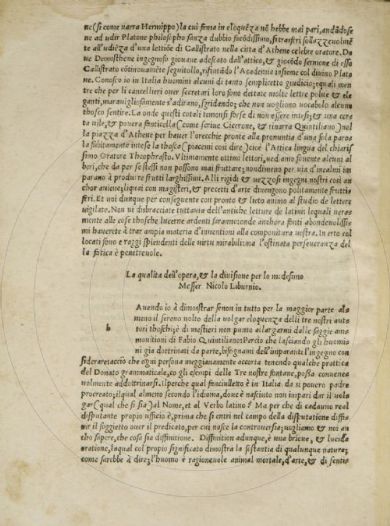 ne (se come narra Hermippo) la cui fama in eloquẽza nõ hebbe mai pari, andãdose
ne ad udir Platone philosopho sanza dubbio facõdissimo, fra
te all'udiẽza d'una lettione di Callistrato nella citta d'Athene celebre oratore. Da
ne Demosthene ingegno giovane adescato dall'attico, & giocõdo sermone di esso
Callistrato cõtinovamẽte seguitollo, rifiutãdo l'Academia insieme col divino Plato
ne. Conosco io in Italia huomini alcuni di tanto semplicetto giudicio, equali men
tre che per li cancellieri over secretari loro sono dettate molte lettre polite & ele
ganti, maravigliosamente s'adirano, sgridando, che non vogliono vocabolo alcuno
thosco sentire. La onde questi cotali
ta vile, & povera feminella (come scrive Cicerone, & rinarra Quintiliano) nel
la piazza d'Athene per haver l'orecchie pronte alla pronuntia d'una sola parola
la subitamente intese la thosca (piacemi cosi dire) cioè l'Attica lingua del chiaris
simo Oratore Theophrasto. Ultimamente ottimi lettori, ne d'anno sovente alcuni al
bori, che da per se stessi non possono mai fruttare, nondimeno per via d'incalmi im
parano à produre frutti larghissimi. Alli rigidi & rozzi ingegni nostri cosi an
chor aviene, liquai con magisteri, & precetti d'arte divengono politamente fruttife
ri. Et noi dunque per conseguente con pronto & lieto animo al studio de lettere
vigilate. Non vi distracciate tuttavia dell'antiche letture de latini: lequali nera
mente alle cose thosche lucerne ardenti saranno
mi haverete à trar ampia materia d'inventioni alla compositura vostra. In erto col
locati sono e raggi splendenti delle virtu mirabili: ma l'ostinata perseveranza del
la fatica è penetrevole.
La qualita dell'opera, & la divisione per lo medesimo
Messer Nicolo Liburnio.
Avendo io à dimostrar senon in tutto per la maggior parte al
meno il sereno volto della volgar eloquenza delli tre nostri auto
h ri thoschi; è di mestieri non punto allargarmi dalle sagge amo
monitioni di Fabio Quintiliano. Perciò che lasciando gli huomi
ni gia dottrinati da parte, bisognami dell'imparanti l'ingegno con
siderare: accio che ogni persona maggiormente accorta tenendo qualche prattica
del Donato grammaticale, co gli esempi delle Tre nostre fontane, possa convene
volmente addottrinarsi. Il perche qual fanciulletto è in Italia da si povero padre
procreato: il qual almeno secondo l'idioma, dove è nasciuto non impari dar il vol
gar (qual che si sia) al Nome, et al Verbo latino? Ma per che di cadauno real
disputante proprio ufficio è, prima che s'entri nel campo della disputatione diffi
nir il soggietto over il predicato, per cui nasce la controversia: vogliamo & noi an
cho sapere, che cosa sia diffinitione. Diffinition adunque, è una brieve, & lucida
oratione, laqual col proprio significato dimostra la sustantia di qualunque natura;
come sarebbe à dire; l'huomo è ragionevole animal mortale, d'arte, & di scntio